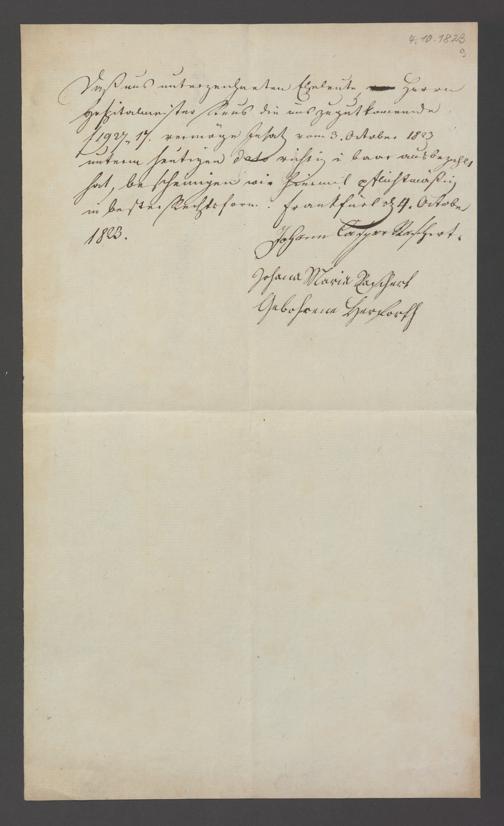 4.10.1823
9
Daß uns unterzeichneten Eheleute Herrn
Hospitalmeister Kraus die uns zugutkommende
f 1927, 17. vermöge vom 3. October 1823
unterm heutigen dato richtig u baar ausbezahlt
hat, bescheinigen wir hiermit pflichtmäßig
in bester Rechtsform. Frankfurt d 4. Octobr
1823.
Johann Caspar Raschert.
Johana Maria Raschert
Gebohrene Herforth